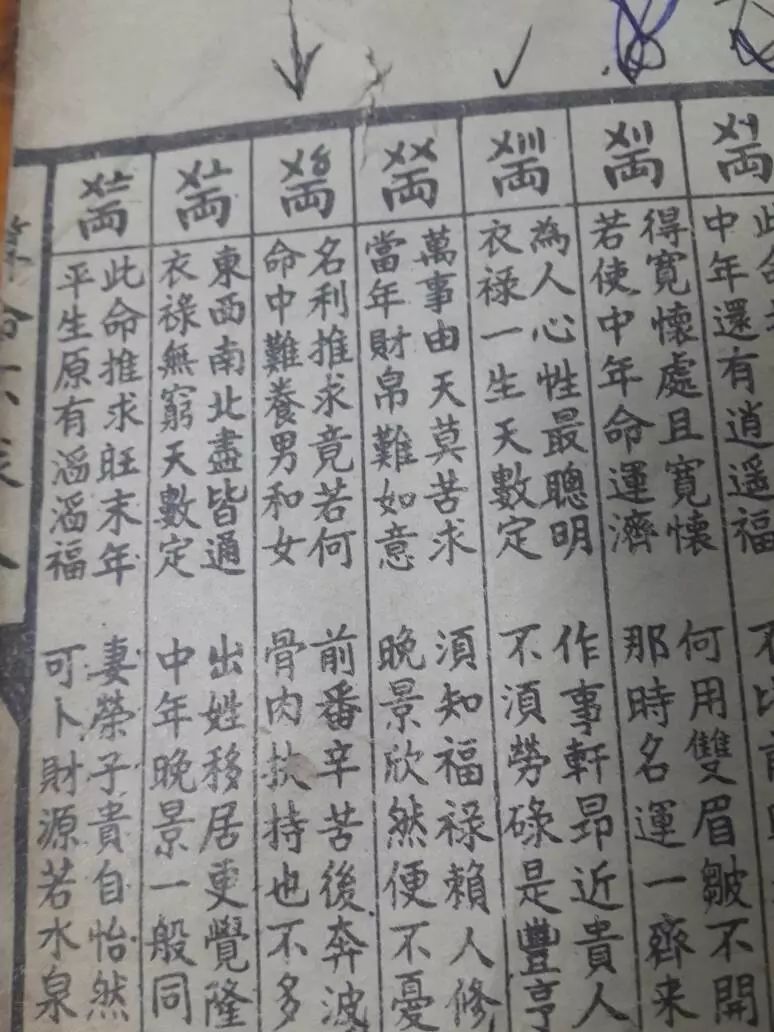 〤〡両
此命
中年還有逍遥福
〤〢両
得寬懷處且寬懷 何用雙眉皺不開
若使中年命運濟 那時名運一齊来
〤〣両
為人心性最聰明 作事軒昂近貴人
衣禄一生天數定 不須勞碌是豐亨
〤〤両
萬事由天莫苦求 須知福禄賴人修
當年財帛難如意 晚景欣然便不憂
〤〥両
名利推求竟若何 前番辛苦後奔波
命中難養男和女 骨肉扶持也不多
〤〦両
東西南北盡皆通 出姓移居更覺隆
衣禄無窮天數定 中年晚景一般同
〤〧両
此命推求旺末年 妻榮子貴自怡然
平生原有滔滔福 可卜財源若水泉